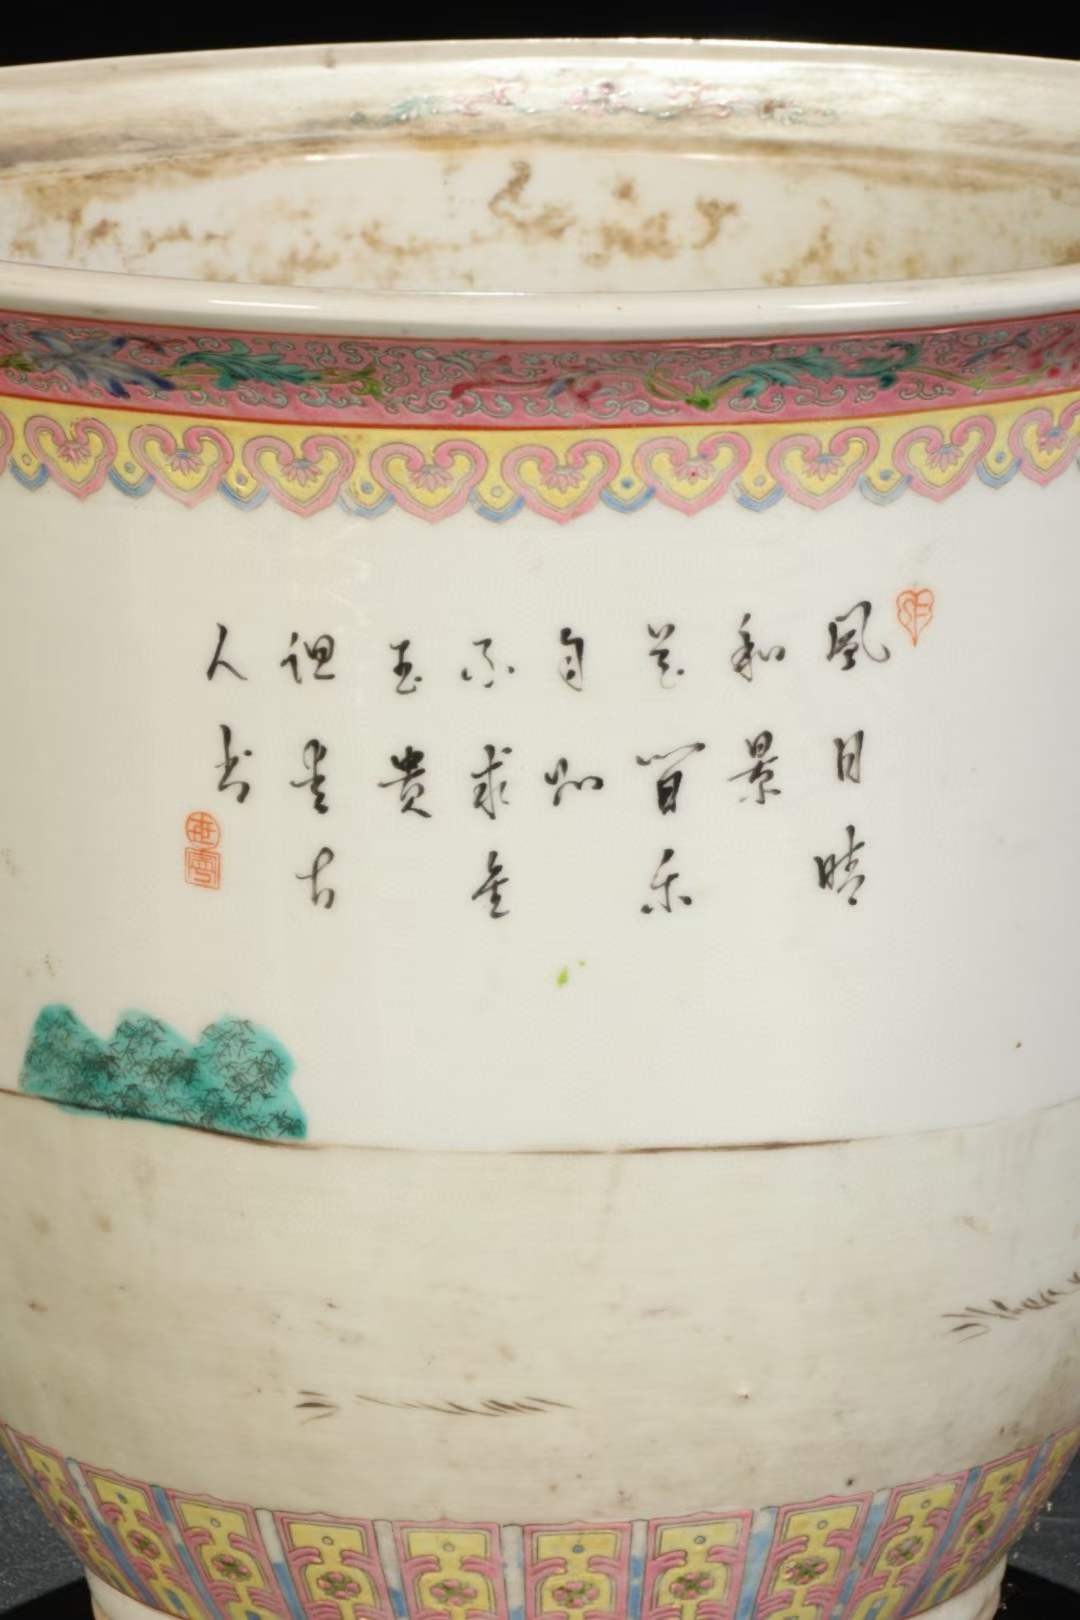 風日晴
和景
花間乐
自如
不求金
玉貴
但責古
人書